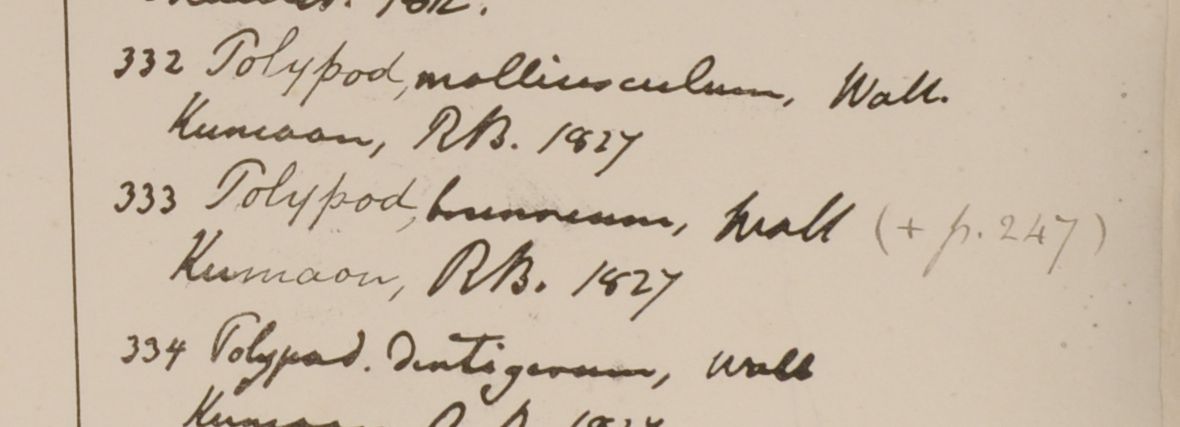 332 Polypod, molliusculum, Wall.
Kumaon, RB. 1827
333 Polypod, brunneum, Wall (+ p. 247)
Kumaon, RB. 1827
334 Polypod. dentigerum, Wall
Kumaon